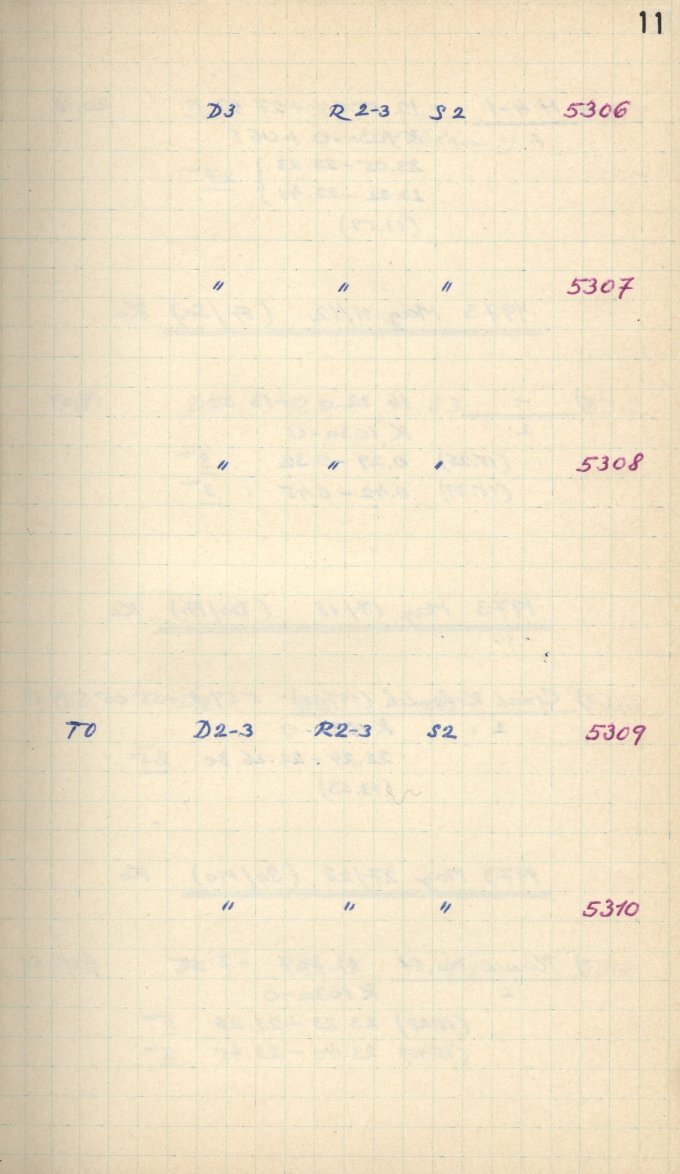 11
D3 R2-3 S2 5306
" " " 5307
" " " 5308
T0 D2-3 R2-3 S2 5309
" " " 5310